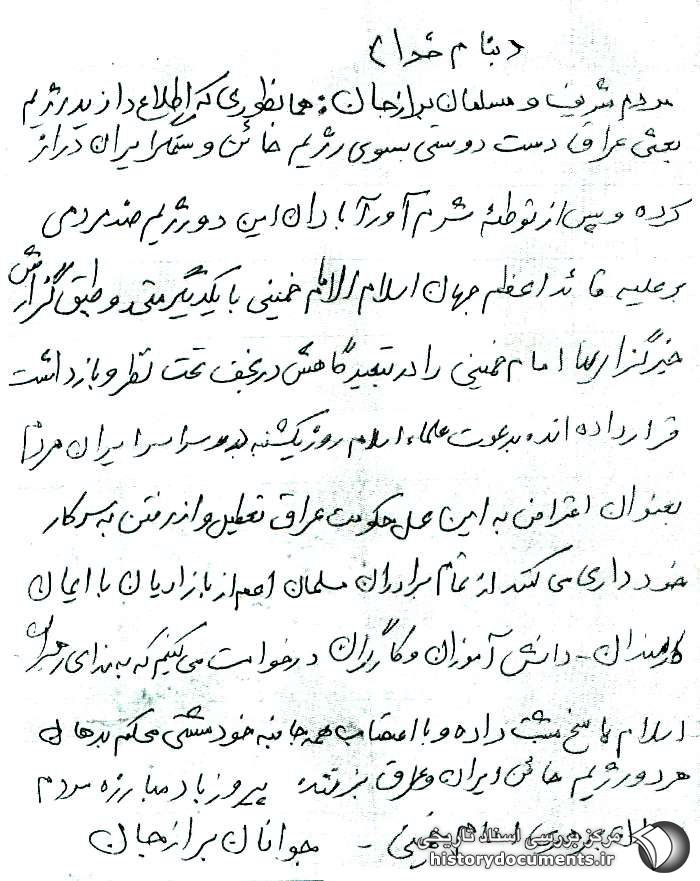 «بنام خدا»
مردم شریف و مسلمان برازجان: همانطوری که اطلاع دارید رژیم
بعثی عراق دست دوستی بسوی رژیم خائن و ستمگر ایران دراز
کرده و پس از توطئهٔ شرم آور آبادان این دو رژیم ضد مردمی
بر علیه قائد اعظم جهان اسلام الامام خمینی با یکدیگر متحد و طبق گزارش
خبرگزاریها امام خمینی را در تبعیدگاهش در نجف تحت نظر و بازداشت
قرار داده اند. بدعوت علماء اسلام روز یکشنبه در سراسر ایران مردم
بعنوان اعتراض به این عمل حکومت عراق تعطیل و از رفتن به سر کار
خودداری می کنند از تمام برادران مسلمان اعم از بازاریان با ایمان
کارمندان - دانش آموزان و کارگران درخواست می کنیم که به ندای رهبران
اسلام پاسخ مثبت داده و با اعتصاب همه جانبه خود مشتی محکم بدهان
هر دو رژیم خائن ایران و عراق بزنند. پیروز باد مبارزه مردم
ایران برهبری امام خمینی - جوانان برازجان
مرکز بررسی اسناد تاریخی
historydocuments.ir